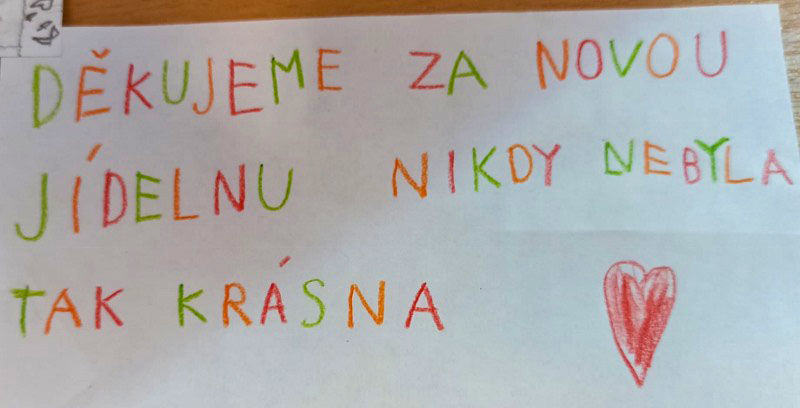 DĚKUJEME ZA NOVOU
JÍDELNU NIKDY NEBYLA
TAK KRÁSNA